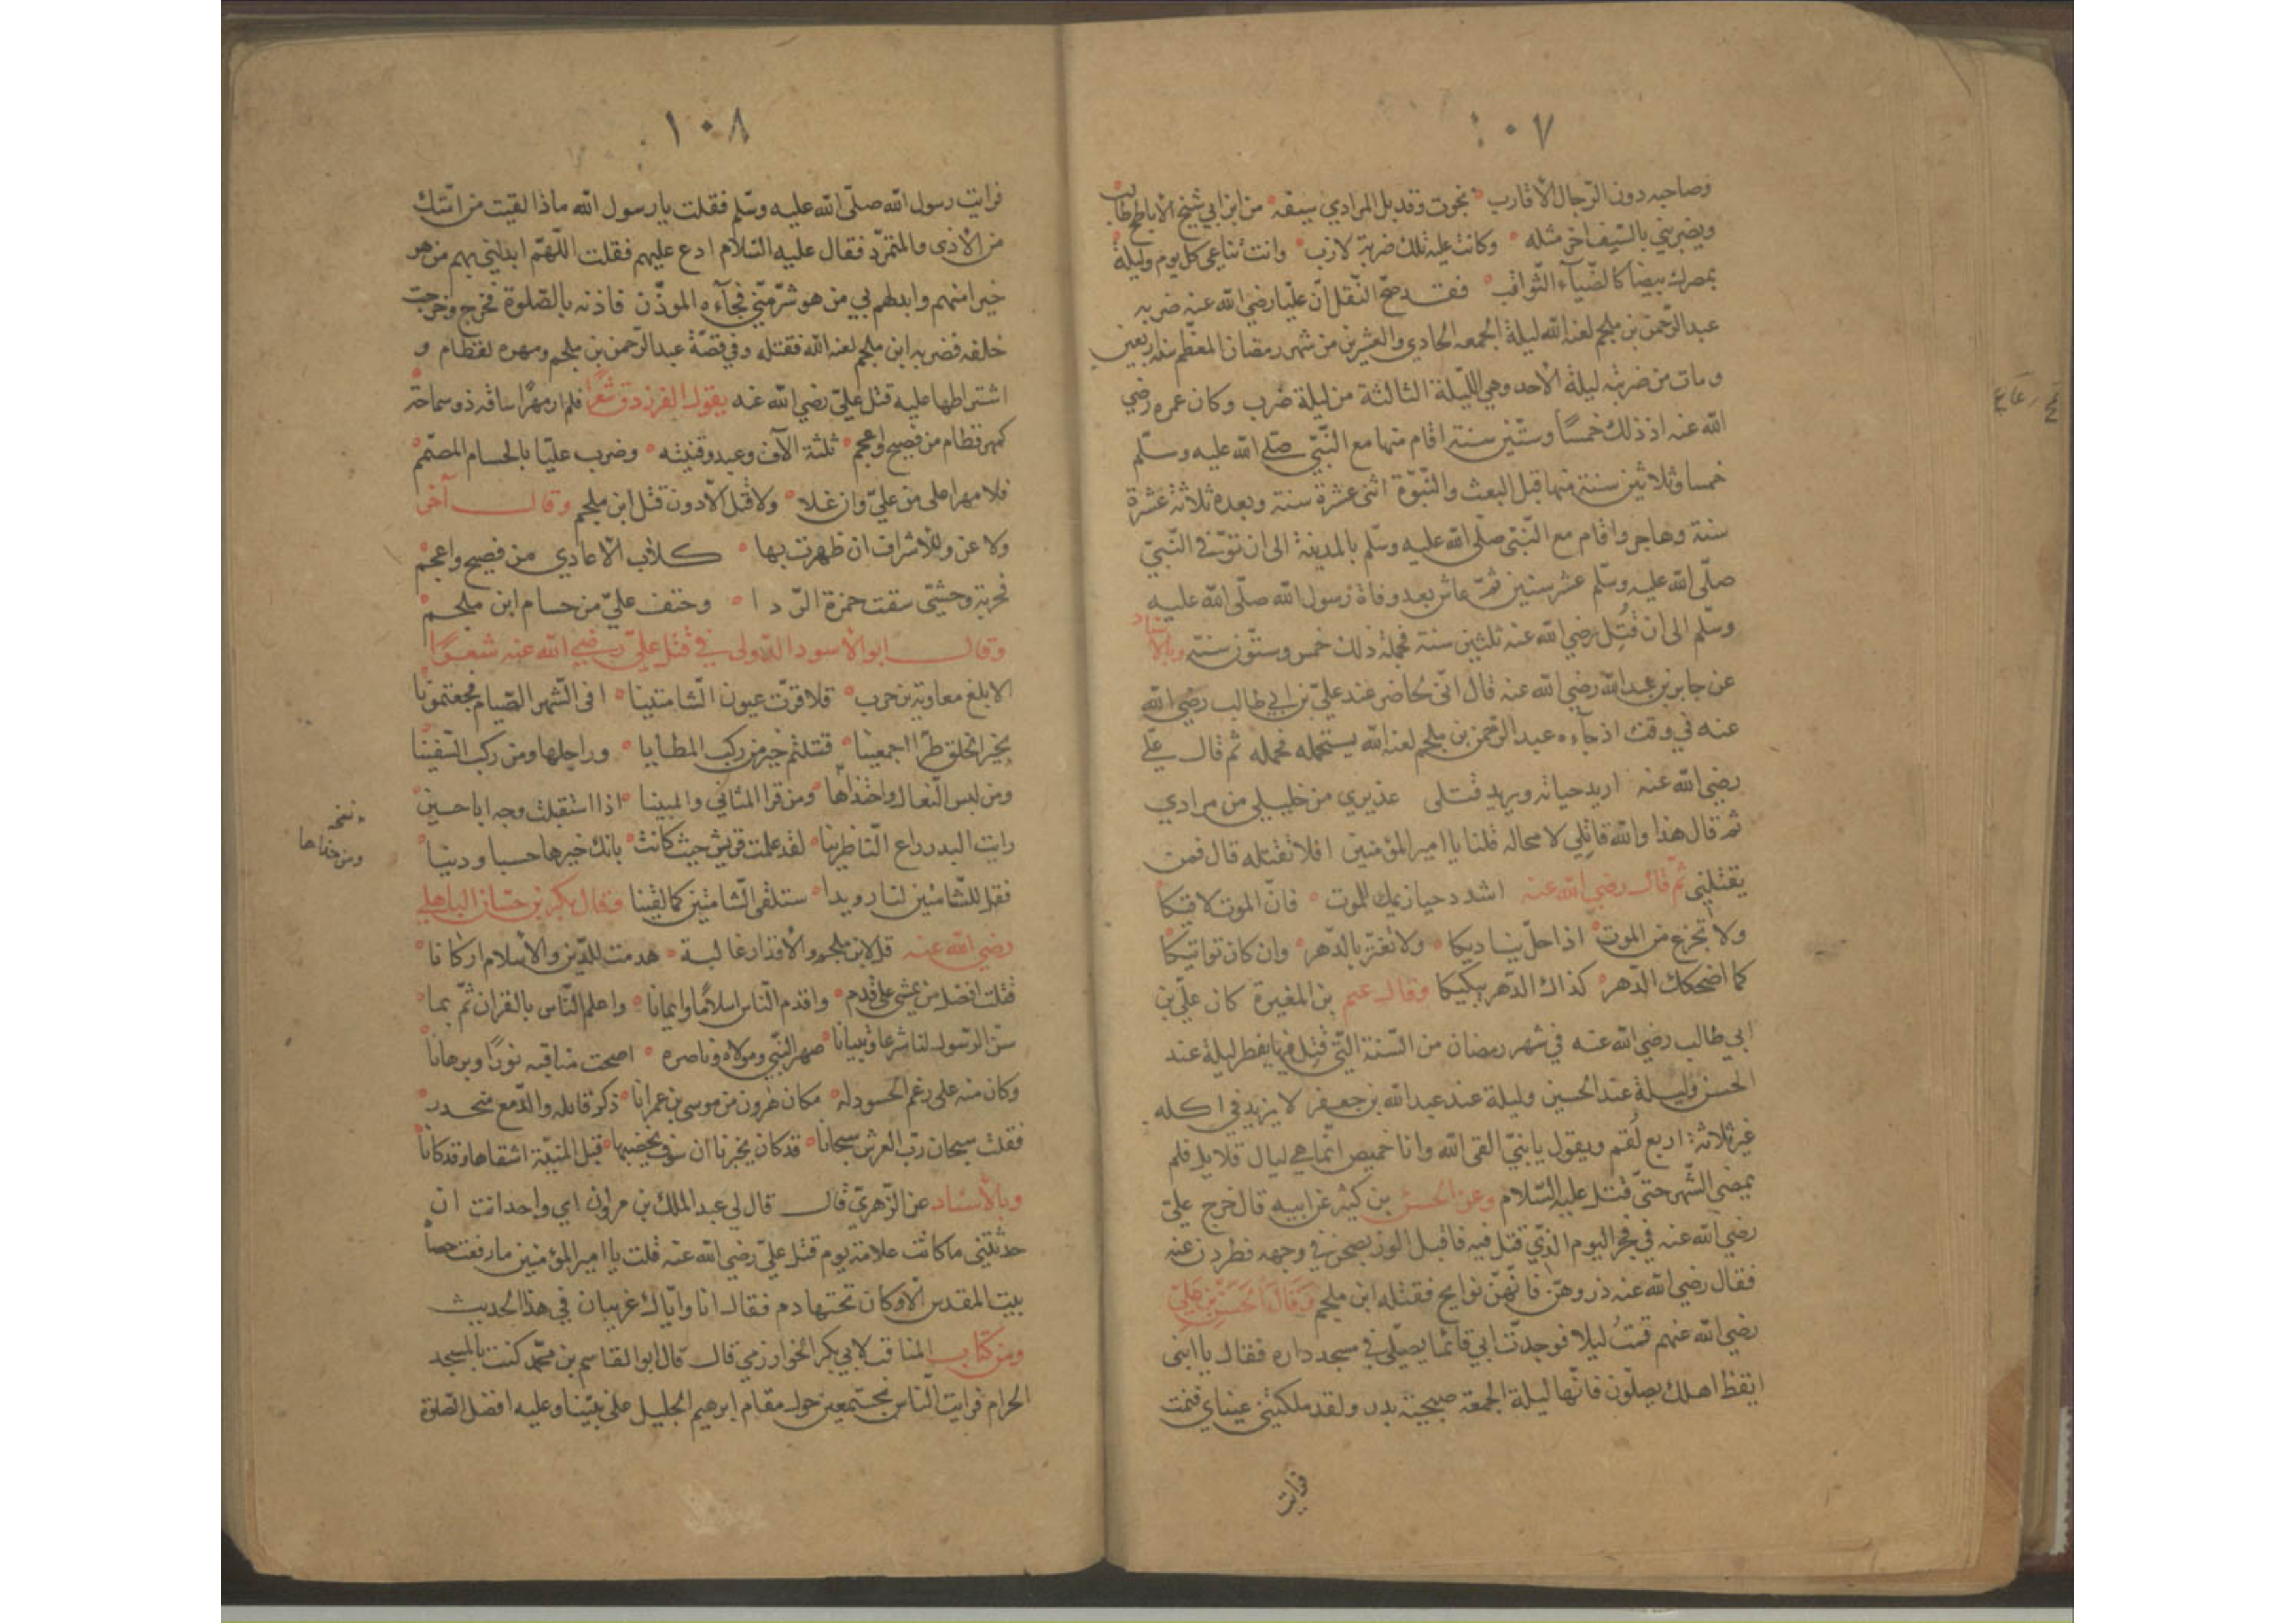 ١٠٧
وصاحبه دون الرجال الأقارب نجوت وقد بل المرادي سيفه من ابن ابي شيخ الاباطح طالب
ويضربني بالسيف اخر مثله وكانت عليه تلك ضربة لازب وانت تناغي كل يوم وليلة
بمصرك بيضا كالضيآء الثواقب فقد صح النقل انّ عليا رضي الله عنه ضربه
عبدالرّحمن بن ملجم لعنه الله ليلة الجمعه الحادي والعشرين من شهر رمضان المعظم سنة اربعين
ومات من ضربته ليلة الأحد وهي الليلة الثالثة من ليلة ضرب وكان عمره رضي
الله عنه اذ ذلك خمسًا وستّين سنة اقام منها مع النّبيّ صلّى الله عليه وسلّم
خمسا وثلاثين سنة منها قبل البعث والنّبوّة اثنى عشرة سنة وبعده ثلاثة عشرة
سنة وهاجر واقام مع النّبيّ صلّى الله عليه وسلّم بالمدينة الى ان توفّى النّبيّ
صلّى الله عليه وسلّم عشر سنين ثمّ عاش بعد وفاة رسول الله صلّى الله عليه
وسلّم الى ان قُتِل رضي الله عنه ثلثين سنة فجملة ذلك خمس وستّون سنة وبالاسناد
عن جابر بن عبدالله رضي الله عنه قال انّي لحاضر عند عليّ بن ابي طالب رضي الله
عنه في وقت اذ جآءه عبدالرّحمن بن ملجم لعنه الله يستحمله فحمله ثم قال علي
رضي الله عنه اريد حياته ويريد قتلى عذيري من خليلي من مرادي
ثم قال هذا والله قاتلي لا محاله قلنا يا امير المؤمنين افلا نقتله قال فمن
يقتلني ثمّ قال رضي الله عنه اشدد حيازيمك للموت فانّ الموت لاقيكا
ولا تجزع من الموت اذا حلّ بناديكا ولا تغتر بالدّهر وان كان تواتيكا
كما اضحكك الدّهر كذاك الدّهر يبكيكا وقال عثم بن المغيرة كان عليّ بن
ابي طالب رضي الله عنه في شهر رمضان من السّنة الّتي قُتِل فيها يفطر ليلة عند
الحسن وليلة عند الحسين وليلة عند عبدالله بن جعفر لا يزيد في اكله
غير ثلاثة اربع لُقم ويقول يا بنيّ القى الله وانا خميص انّما هي ليال قلايل فلم
يمضي الشّهر حتّى قتل عليه السّلام وعن الحسن بن كثير عن ابيه قال خرج عليّ
رضي الله عنه في فجر اليوم الذّي قتل فيه فاقبل الوز يصحن في وجهه فطردن عنه
فقال رضي الله عنه ذروهنّ فانّهنّ نوايح فقتله ابن ملجم وَقَالَ الحَسَنُ بْنِ عَلِيّ
رضي الله عنهم قمتُ ليلا فوجدّت ابي قائما يصلّي في مسجد داره فقال يا ابنى
ايقظ اهلك يصلّون فانّها ليلة الجمعة صبيحة بدر ولقد ملكتني عيناي فنمت
فرايت
١٠٨
فرايت رسول الله صلّى الله عليه وسلّم فقلت يا رسول الله ماذا لقيت من امّتك
من الأذى والتمرّد فقال عليه السّلام ادع عليهم فقلت اللّهمّ ابدلني بهم من هو
خيرا منهم وابدلهم بي من هو شرّ منّي فجآءه الموذّن فاذنه بالصّلوة فخرج وخرجت
خلفه فضربه ابن ملجم لعنه الله فقتله وفي قصّة عبدالرّحمن بن ملجم ومهره لقطام و
اشتراطها عليه قتل عليّ رضي الله عنه يقول الفرزدق شعرًا فلم ار مهرًا ساقه ذو سماحة
كمهر قطام من فصيح واعجم ثلثة الآف وعبد وقنيته وضرب عليّا بالحسام المصمّم
فلا مهرا على من عليّ وان غلا ولا قتل الّا دون قتل ابن ملجم وقال آخر
ولا عن وللأشراف ان ظهرت بها كلاب الأعادي من فصيح واعجم
فحربة وحشيّ سقت حمزة الرّدا وحتف عليّ من حسام ابن ملجم
وقال ابو الأسود الدّولى في قتل عليّ رضي الله عنه شعرًا
الا بلغ معاوية بن حرب فلا قرّت عيون الّشامتينا افى الّشهر الصّيام فجعتمونا
بخير الخلق طرّا اجمعينا قتلتم خير من ركب المطايا ورحلها ومن ركب السّفينا
ومن لبس النّعال واحتذاها ومن قرا المثاني والمبينا اذا استقبلت وجه ابا حسين
رايت البدر راع النّاظرينا لقد علمت قريش حيث كانت بانك خيرها حسبا ودينا
فقل للشّامتين لنا رويدا ستلقى الشّامتين كما لقينا وقال بكر بن حسّان الباهلي
رضي الله عنه قل لابن ملجم والأقدار غالبة هدمت للدّين والأسلام اركانا
قتلت افضل من يمشي على قدم واقدم النّاس اسلامًا وايمانا واعلم النّاس بالقران ثمّ بما
سنّ الرّسول لنا شرعا وتبيانا صهر النّبي ومولاه وناصره اضحت مناقبه نورًا وبرهانا
وكان منه على رغم الحسود له مكان هرون من موسى بن عمرانا ذكرت قاتله والدّمع منحدر
فقلت سبحان ربّ العرش سبحانا قد كان يخبرنا ان سوف يخضبها قبل المنيّة اشقاها وقد كانا
وبالأسناد عن الزّهريّ قال قال لي عبد الملك بن مروان اي واحد انت ان
حدثتني ما كانت علامة يوم قتل عليّ رضي الله عنه قلت يا امير المؤمنين ما رفعت حصا
بيت المقدس الّا وكان تحتها دم فقال انا وايّاك غريبان في هذا الحديث
ومن كتاب المناقب لابي بكر الخوارزمي قال قال ابو القاسم بن محمّد كنت بالمسجد
الحرام فرايت النّاس مجتمعين حول مقام ابرهيم الجليل على نبيّنا وعليه افضل الصّلوة
نسخه